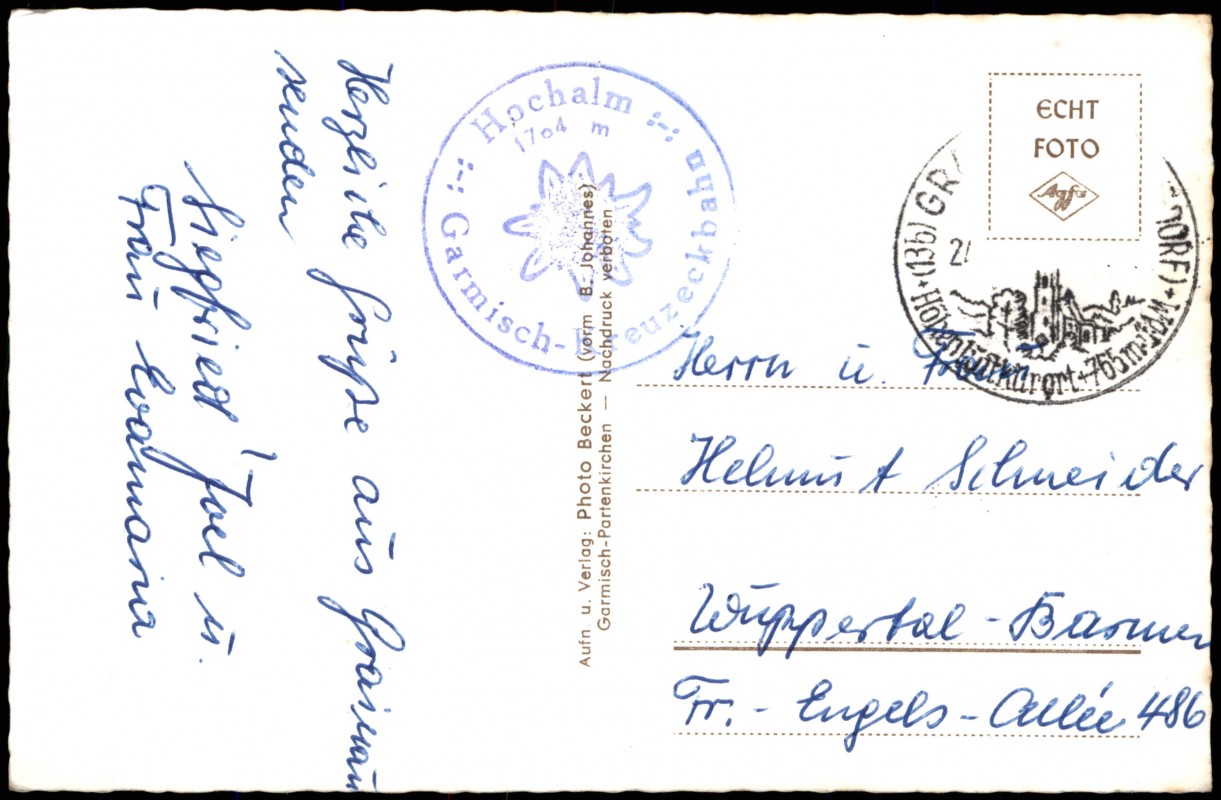 Herzliche Grüße aus Grainau
senden
Siegfried Joel u.
Frau Evamaria
:-: Hochalm :-:
1704 m
Garmisch-Kreuzeckbahn
Aufn u. Verlag: Photo Beckert (vorm B. Johannes)
Garmisch-Partenkirchen — Nachdruck verboten
ECHT
FOTO
Agfa
(13b) GR
DORF)
Höhenluftkurort + 765m
Herrn u. Frau
Helmut Schneider
Wuppertal - Barmen
Fr. - Engels - Allée 486